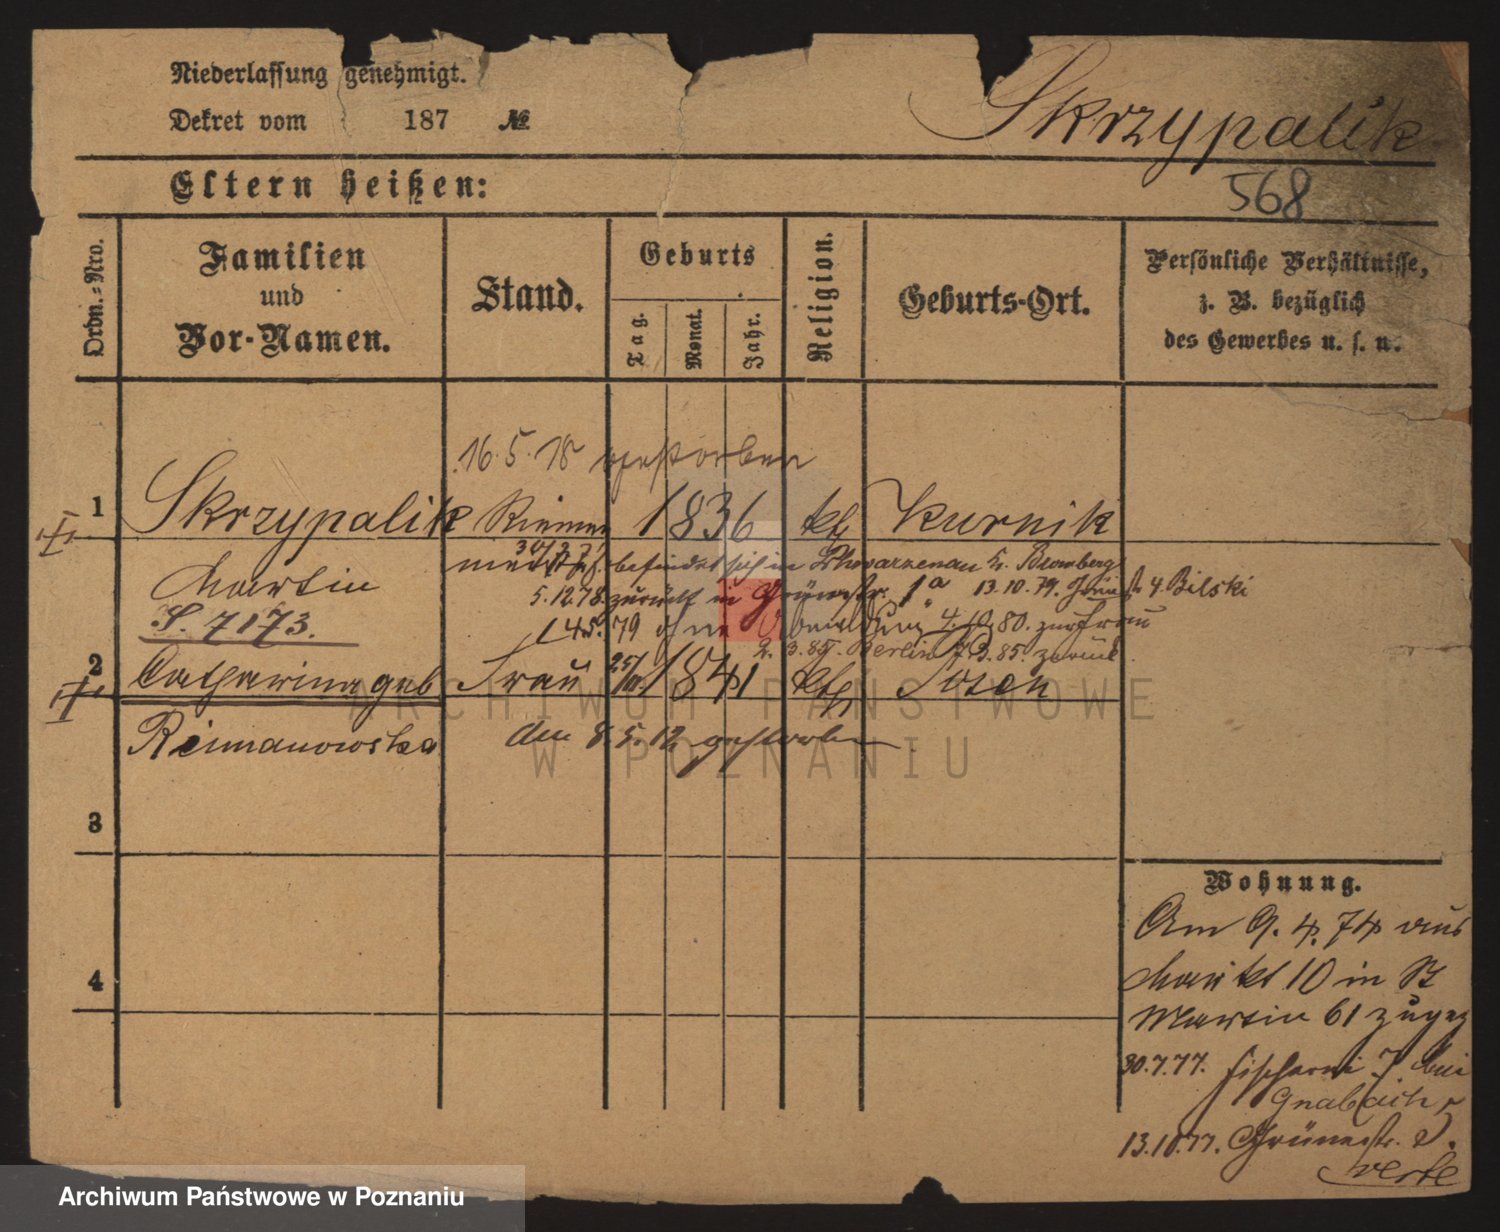 Niederlassung genehmigt.
Dekret vom 187 №
Skrzypalik
568
Eltern heißen:
Ordn.-Nro.
Familien
und
Vor-Namen.
Stand.
Geburts
Tag.
Monat.
Jahr.
Religion.
Geburts-Ort.
Persönliche Verhältnisse,
z. B. bezüglich
des Gewerbes u. s. w.
16.5.18 gestorben
1 Skrzypalik Riemer 1836 kth Kurnik
Martin
befindet sich in Schwarzenau b. Bromberg
5.12.78. zurück in Grünestr. 1a 13.10.79. 4. Bilski
S. 7173.
79 ohne Abmeldung 4.10.80. zur Frau
2.3.85. Berlin 85. zurück
2 Catharina geb Frau 25/11 1841 kth Posen
Reimanowska den 8.5.12 gestorben
3
4
Wohnung.
Am 9.4.74 aus
Markt 10 in St
Martin 61 zugez
30.7.77. Fischerei 7 bei
Gnabaith
13.10.77. Grünestr. 2.
verte
ARCHIWUM PAŃSTWOWE
W POZNANIU
Archiwum Państwowe w Poznaniu